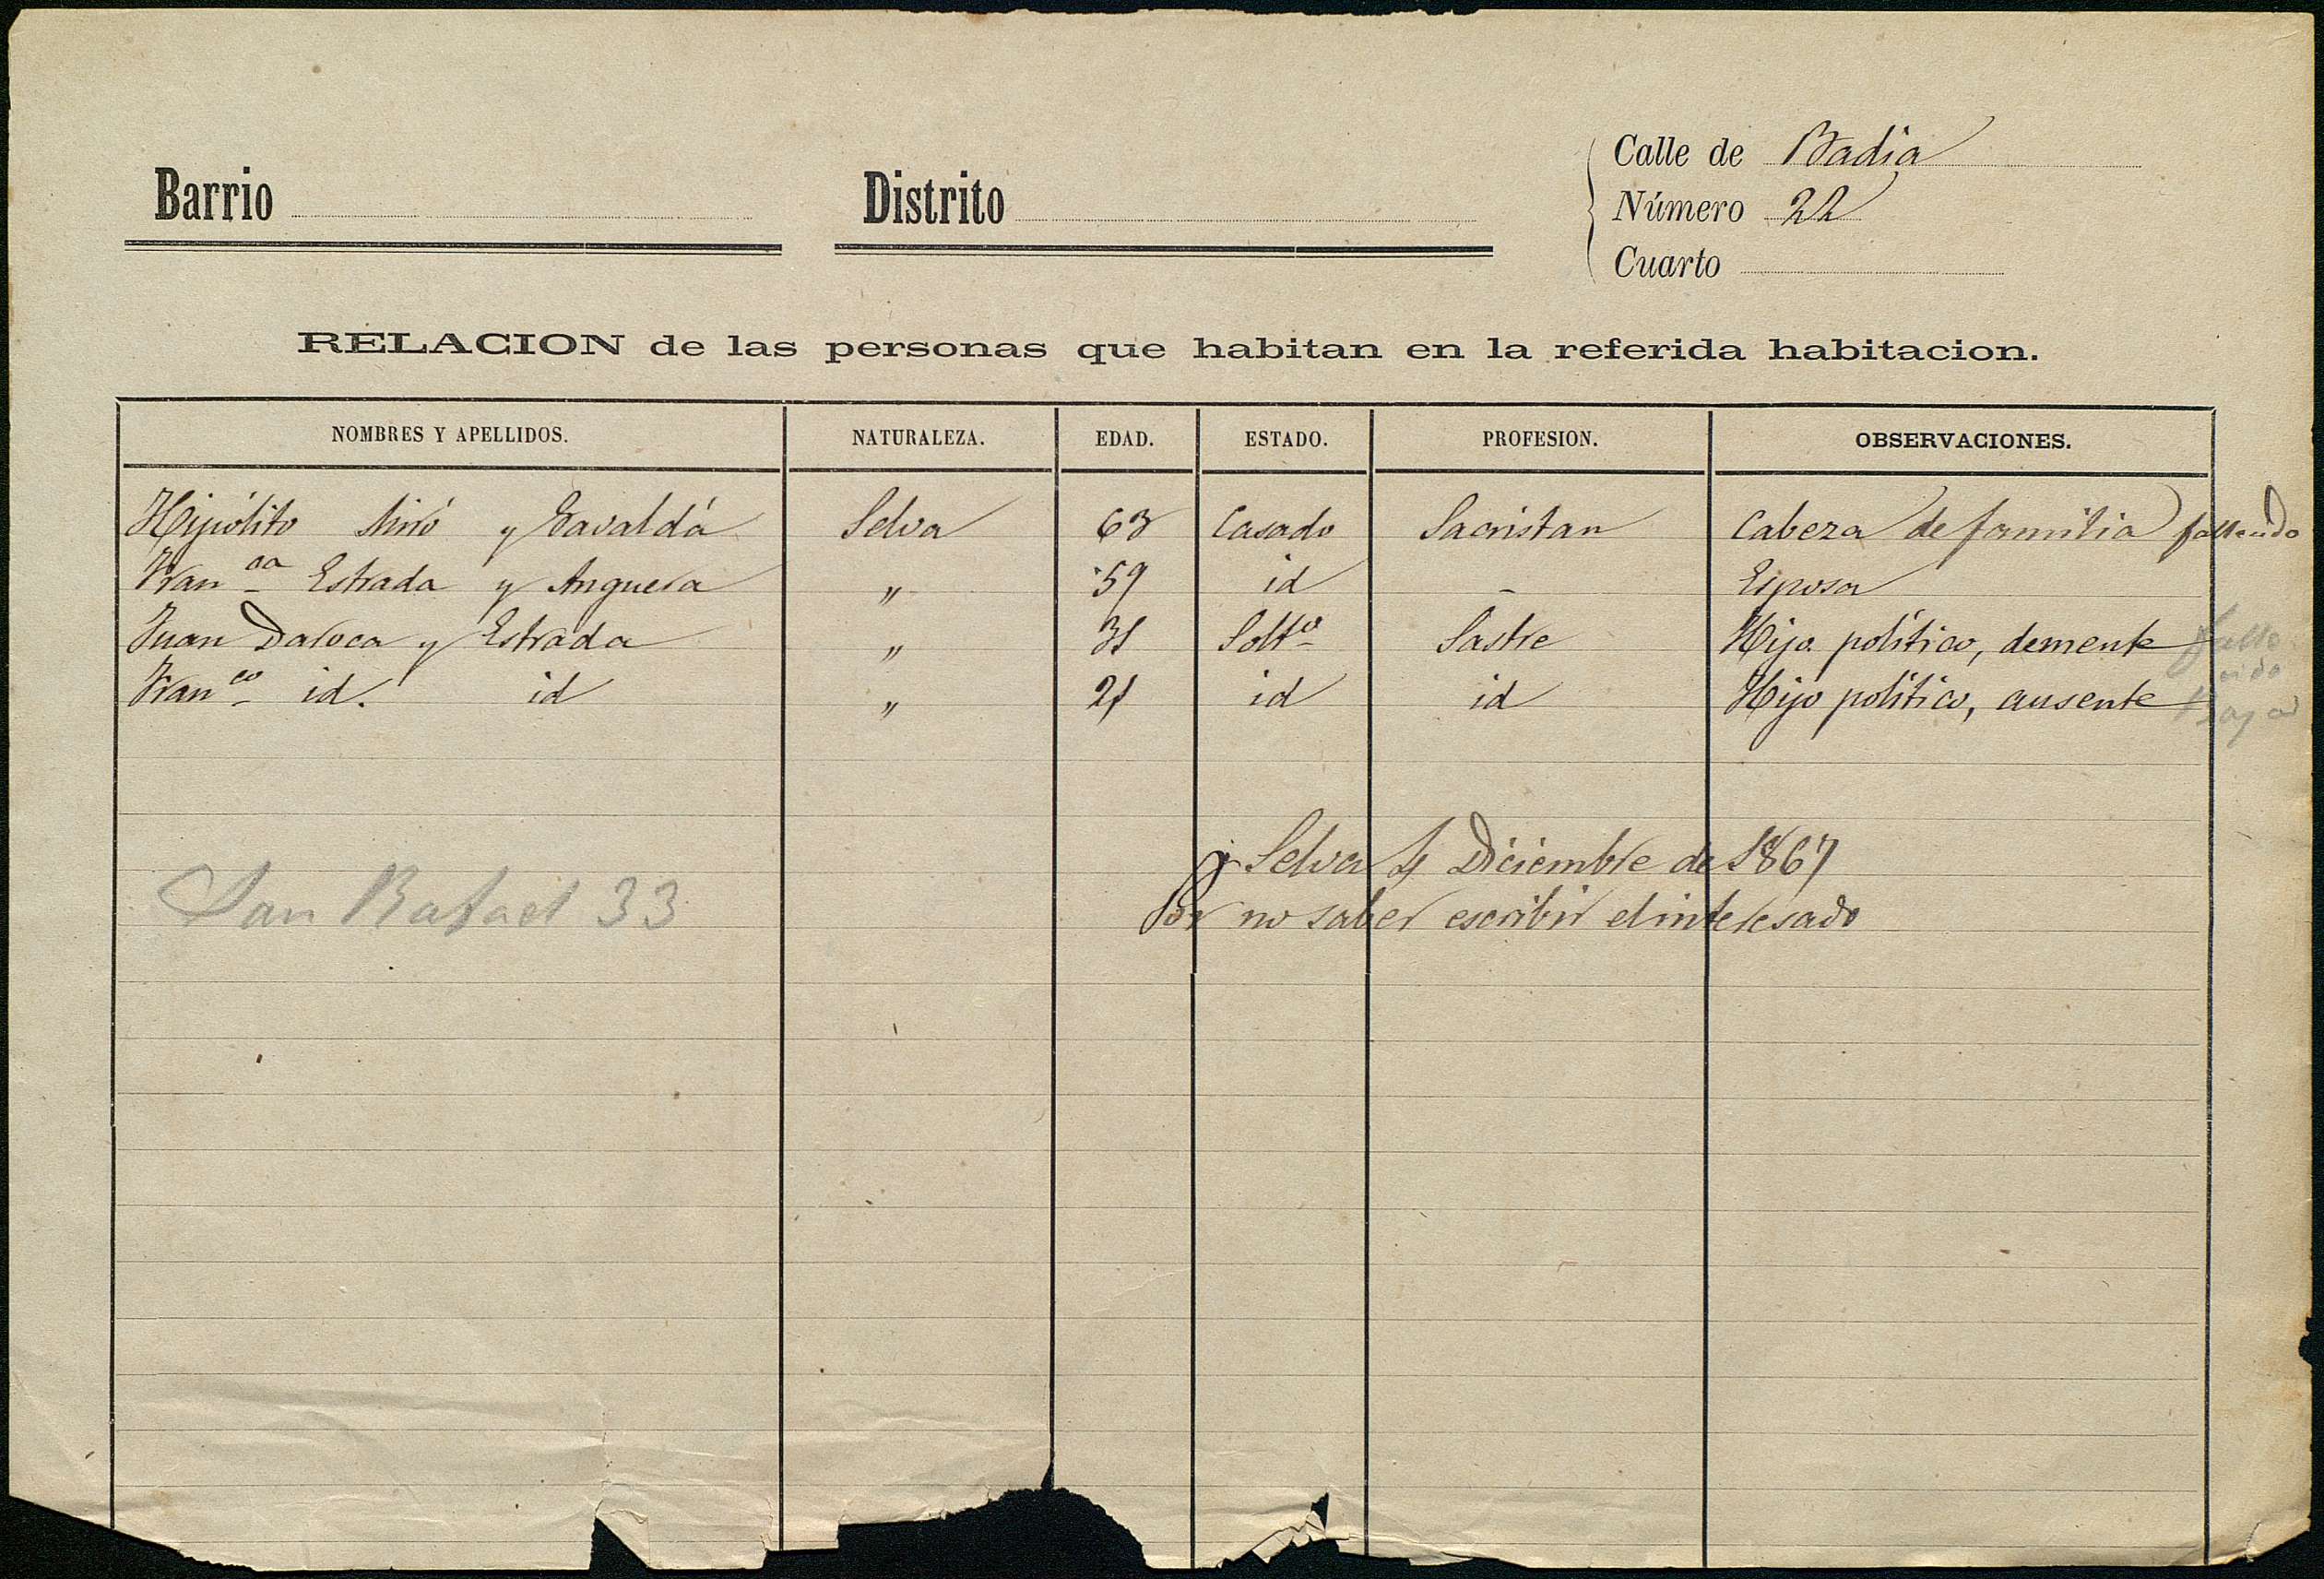 Calle de Badia
Barrio Distrito Número 22
Cuarto
RELACION de las personas que habitan en la referida habitacion.
NOMBRES Y APELLIDOS. NATURALEZA. EDAD. ESTADO. PROFESION. OBSERVACIONES.
Hipólito Miró y Gavaldá Selva 63 Casado Sacristan Cabeza de familia fallecido
Fran^ca Estrada y Anguera " 59 id - Esposa
Juan Daroca y Estrada " 31 Solt^o Sastre Hijo politico, demente falle
cido
Fran^co id. id " 21 id id Hijo politico, ausente
Selva 4 Diciembre de 1867
San Rafael 33
Por no saber escribir el interesado